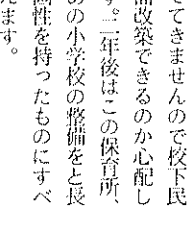 てきませんので校下民
改築できるのか心配し
す。二年後はこの保育所、
めの小学校の整備をと長
性を持ったものにすべ
ます。